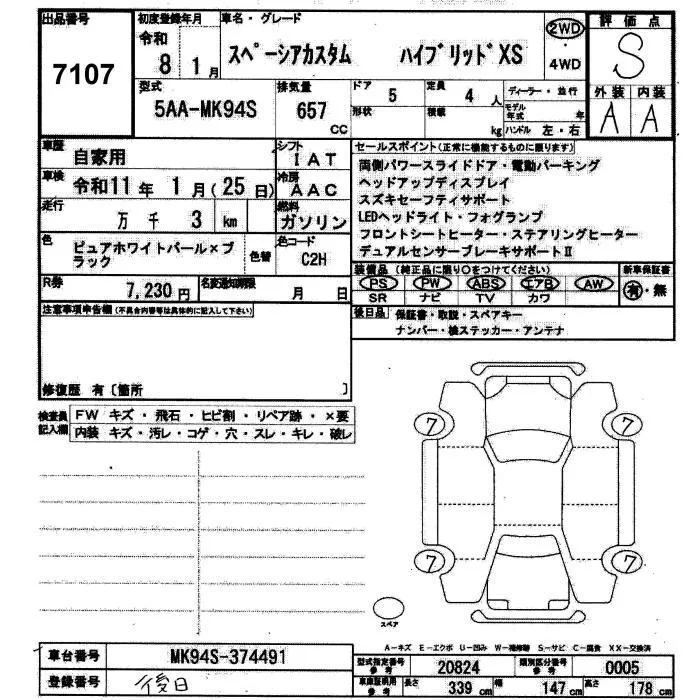 出品番号
7107
初度登録年月
令和
8 1月
車名・グレード
スペーシアカスタム ハイブリッドXS
2WD
・
4WD
評価点
S
外装 内装
A A
型式
5AA-MK94S
排気量
657
CC
ドア
5
定員
4 人
形状
積載
kg
ディーラー・並行
モデル年式 年
ハンドル 左・右
車歴
自家用
シフト
IAT
車検
令和11年 1月(25日)
冷房
AAC
走行
万 千 3 km
燃料
ガソリン
色
ピュアホワイトパール×ブ
ラック
色替
色コード
C2H
R券
7,230円
名変通知期限
月 日
セールスポイント(正常に機能するものに限ります)
両側パワースライドドア・電動パーキング
ヘッドアップディスプレイ
スズキセーフティサポート
LEDヘッドライト・フォグランプ
フロントシートヒーター・ステアリングヒーター
デュアルセンサーブレーキサポートⅡ
装備品(純正品に限り○をつけてください)
PS PW ABS エアB AW
SR ナビ TV カワ
新車保証書
有・無
後日品
保証書・取説・スペアキー
ナンバー・検ステッカー・アンテナ
注意事項申告欄(不具合内容等は具体的に記入して下さい)
修復歴 有〔箇所 〕
検査員
記入欄
FW キズ・飛石・ヒビ割・リペア跡・×要
内装 キズ・汚レ・コゲ・穴・スレ・キレ・破レ
7 7
7 7
スペア
A-キズ E-エクボ U-凹み W-補修跡 S-サビ C-腐食 XX-交換済
車台番号
MK94S-374491
登録番号
後日
型式指定番号
参考
20824
類別区分番号
参考
0005
車庫証明用
参考
長さ 339 cm 幅 147 cm 高さ 178 cm